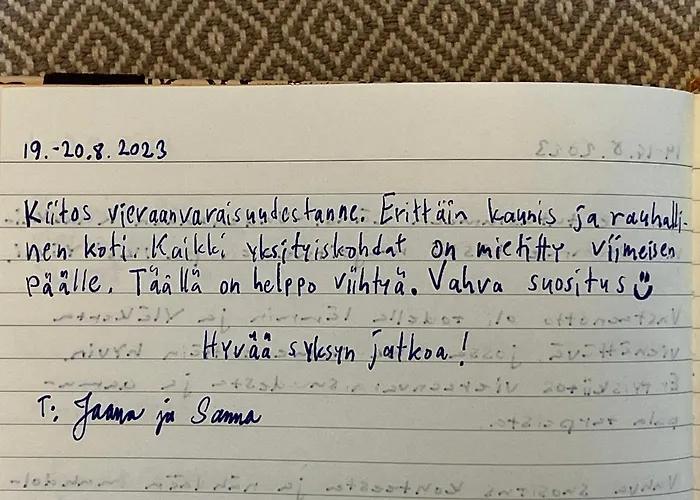 19.-20.8.2023
Kiitos vieraanvaraisuudestanne. Erittäin kaunis ja rauhalli-
nen koti. Kaikki yksityiskohdat on mietitty viimeisen
päälle. Täällä on helppo viihtyä. Vahva suositus
Hyvää syksyn jatkoa!
T: Jaana ja Sanna